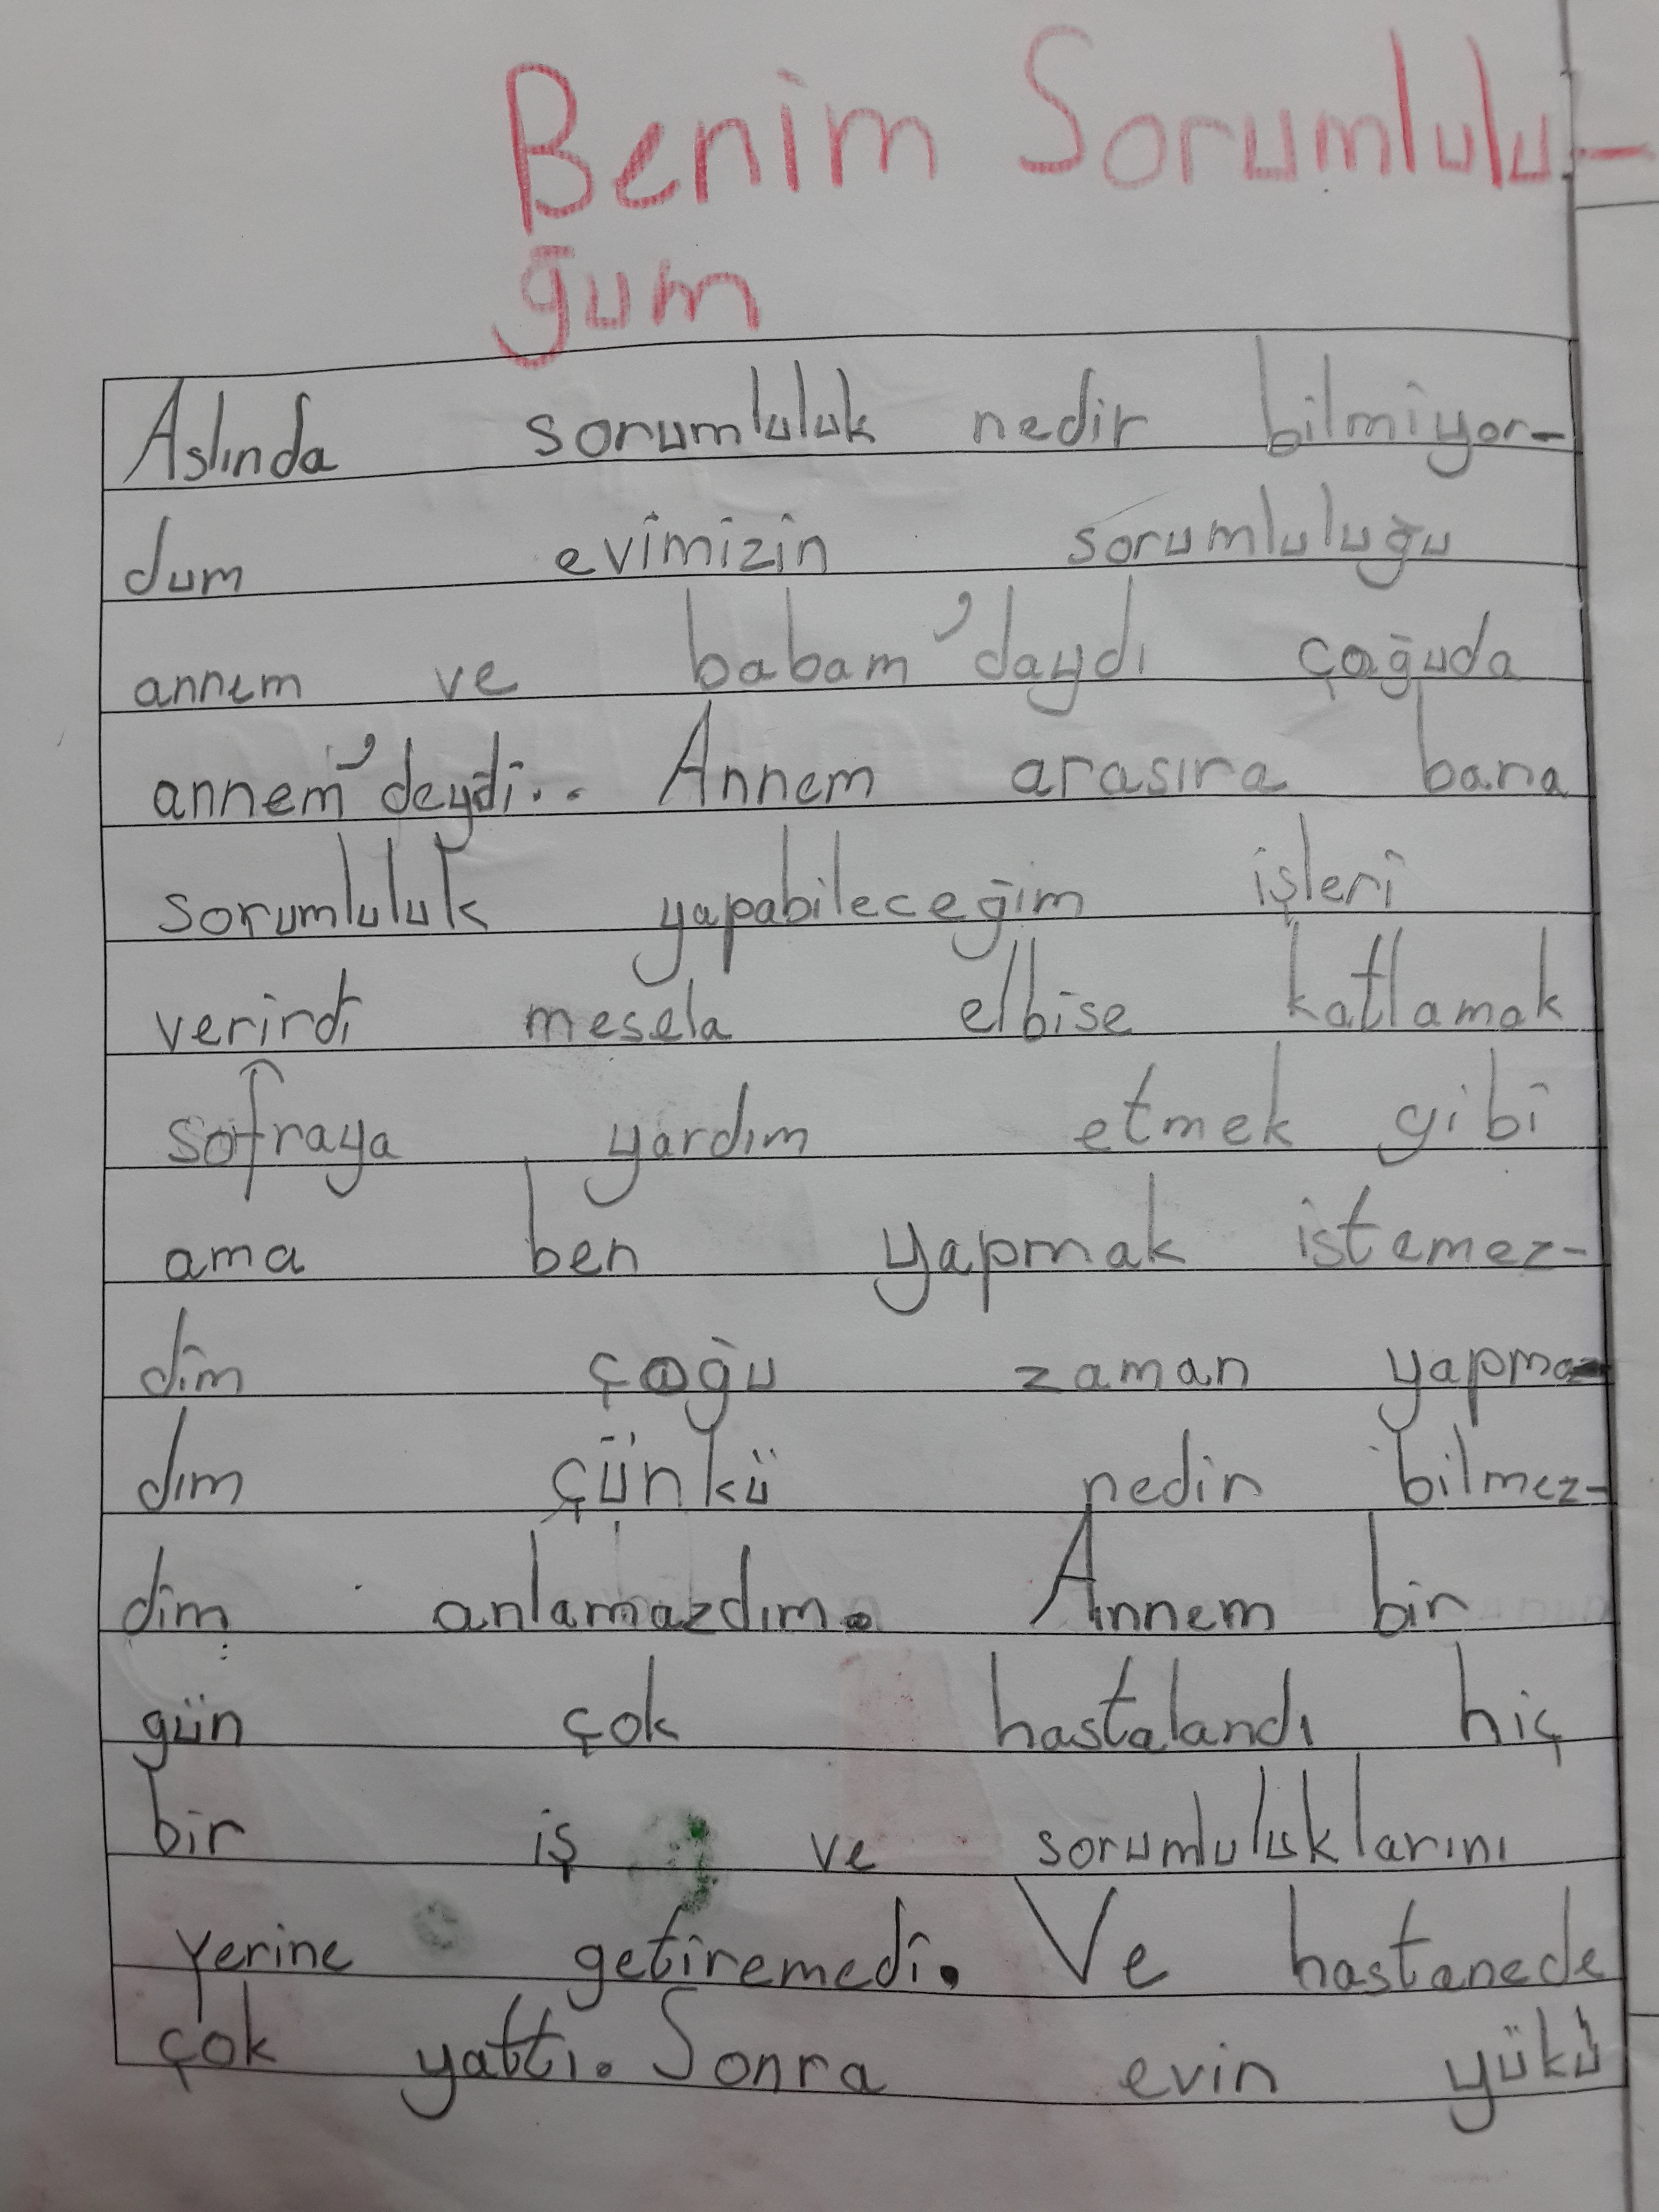 Benim Sorumlulu-
ğum
Aslında sorumluluk nedir bilmiyor-
dum evimizin sorumluluğu
annem ve babam'daydı çoğuda
annem'deydi.. Annem arasıra bana
sorumluluk yapabileceğim işleri
verirdi mesela elbise katlamak
sofraya yardım etmek gibi
ama ben yapmak istemez-
dim çoğu zaman yapmaz-
dım çünkü nedir bilmez-
dim anlamazdım. Annem bir
gün çok hastalandı hiç
bir iş ve sorumluluklarını
yerine getiremedi. Ve hastanede
çok yattı. Sonra evin yükü